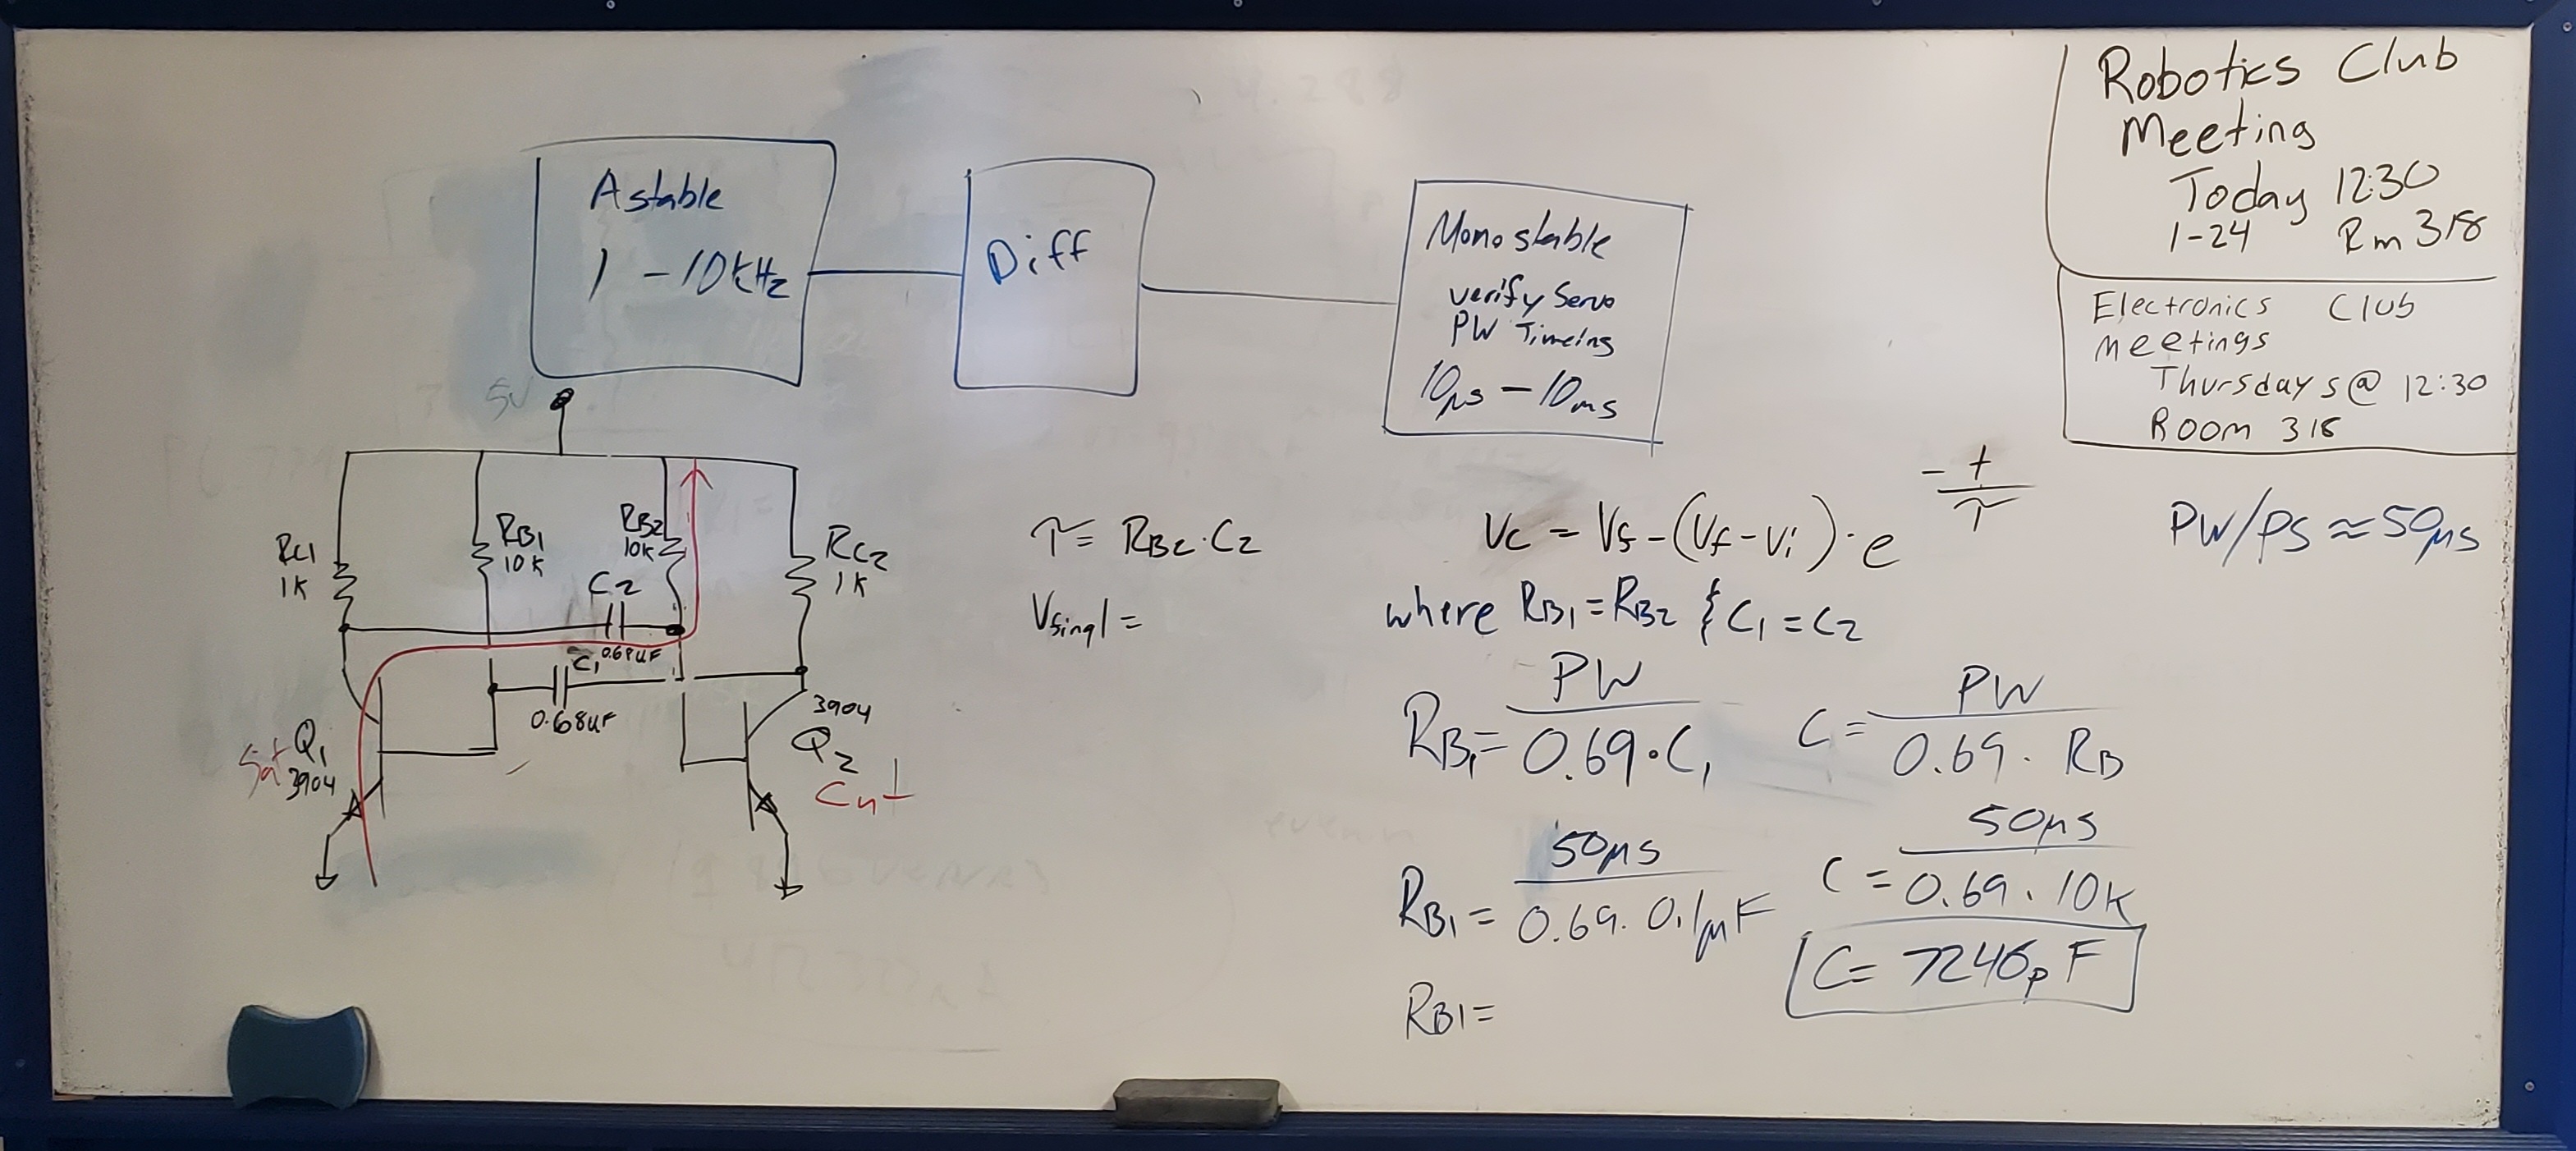 Astable
1 - 10kHz
Diff
Monostable
verify Servo
PW Timeing
10µs - 10ms
Robotics Club
Meeting
Today 12:30
1-24 Rm 318
Electronics Club
meetings
Thursdays @ 12:30
Room 318
5V
RC1
1K
RB1
10K
RB2
10K
RC2
1K
C2
0.68uF
C1
0.68uF
Sat
Q1
3904
3904
Q2
Cut
τ = RB2 · C2
Vfinal =
Vc = Vf - (Vf - Vi) · e^(-t/τ)
PW/PS ≈ 50µs
where RB1 = RB2 & C1 = C2
RB1 = PW / 0.69 · C1
C = PW / 0.69 · RB
RB1 = 50µs / 0.69 · 0.1µF
C = 50µs / 0.69 · 10K
RB1 =
C = 7246pF